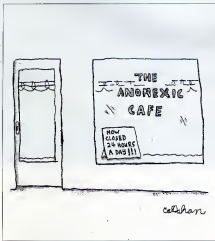 THE
ANOREXIC
CAFE
NOW
CLOSED
24 HOURS
A DAY!!!
CALLAHAN